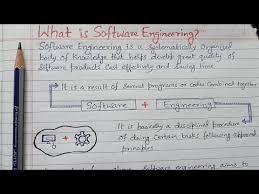 What is Software Engineering?
Software Engineering is a systematically Organised
body of Knowledge that helps develop great quality of
Software products Cost effectively and Saving time
It is a result of Several programs or Codes Combined together
Software + Engineering
It is basically a disciplined procedure
of doing Certain tasks following approved
principles
+
Software engineering aims to